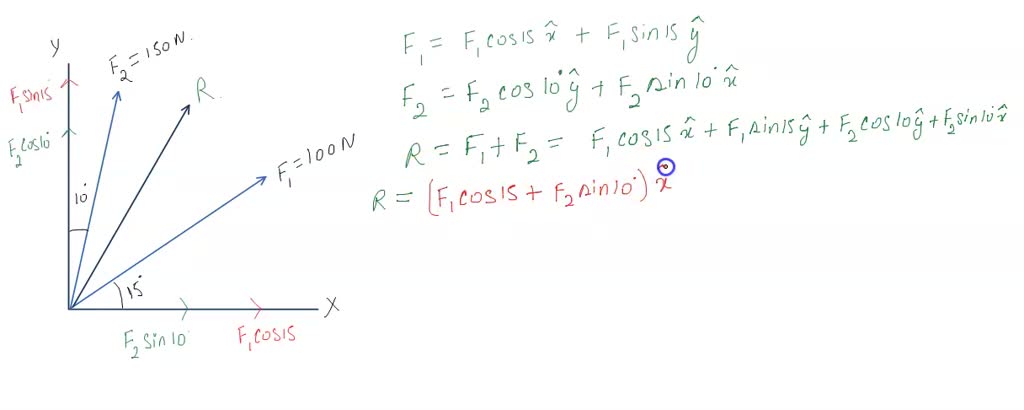 Y
F₂ = 150 N.
F₁ sin15
R
F₂ cos10°
F₁ = 100 N
10°
15°
X
F₂ sin10
F₁ cos15
F₁ = F₁ cos15 x̂ + F₁ sin15 ŷ
F₂ = F₂ cos10° ŷ + F₂ sin10° x̂
R = F₁ + F₂ = F₁ cos15 x̂ + F₁ sin15 ŷ + F₂ cos10 ŷ + F₂ sin10 x̂
R = (F₁ cos15 + F₂ sin10°) x̂